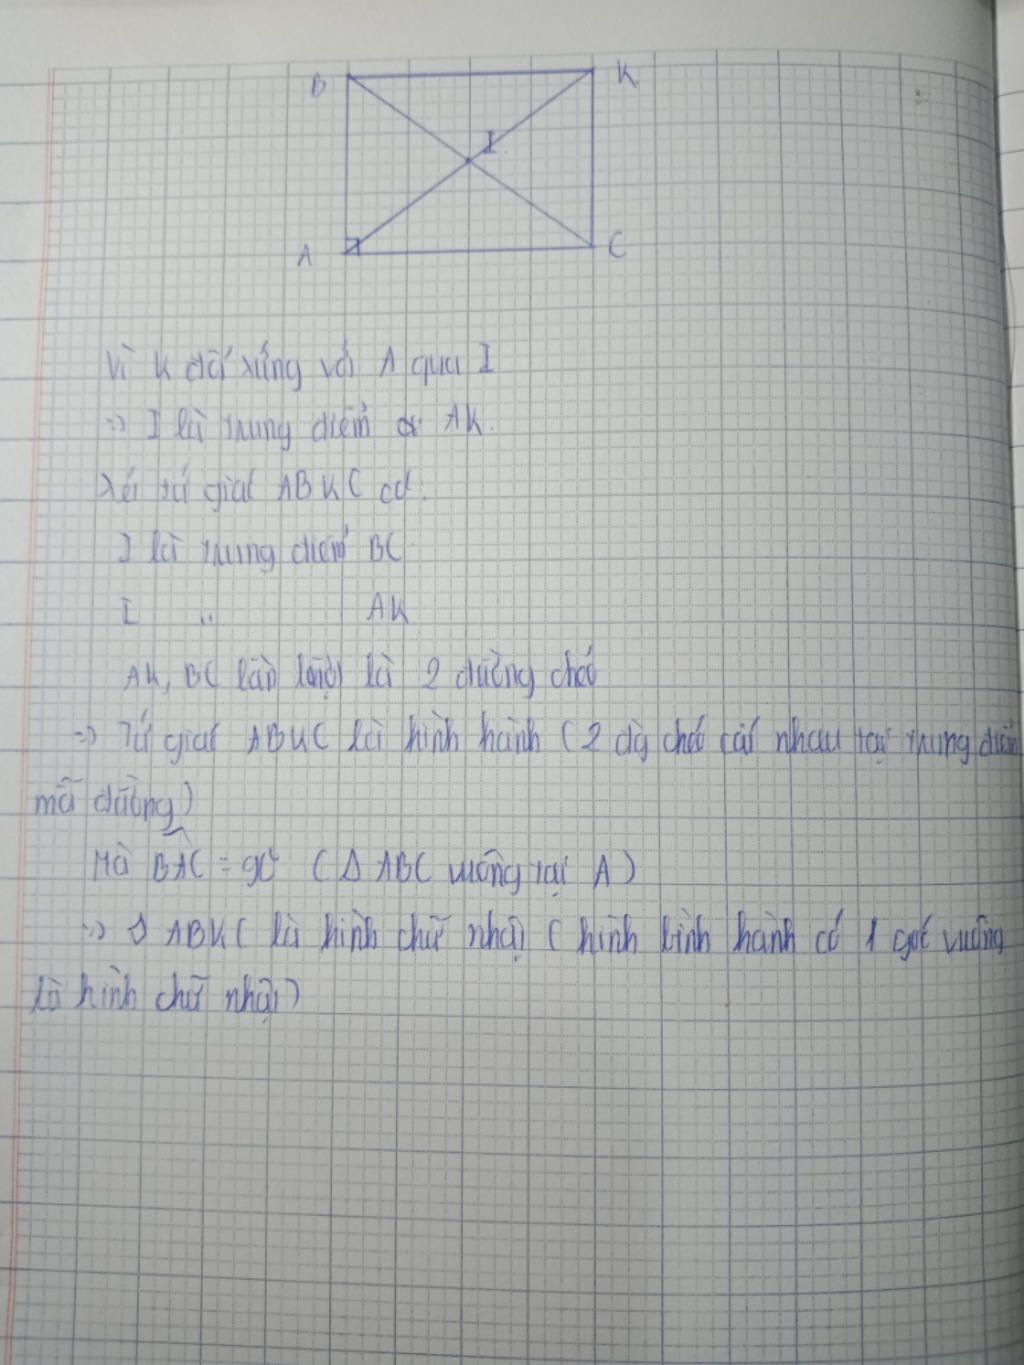 B K
I
A C
Vì K đối xứng với A qua I
=> I là trung điểm AK.
Xét tứ giác ABKC có:
I là trung điểm BC
I " AK
AK, BC lần lượt là 2 đường chéo
=> Tứ giác ABKC là hình hành (2 đg chéo cắt nhau tại trung điểm
mỗi đường)
Mà BAC = 90° (Δ ABC vuông tại A)
=> ABKC là hình chữ nhật (hình bình hành có 1 góc vuông
là hình chữ nhật)